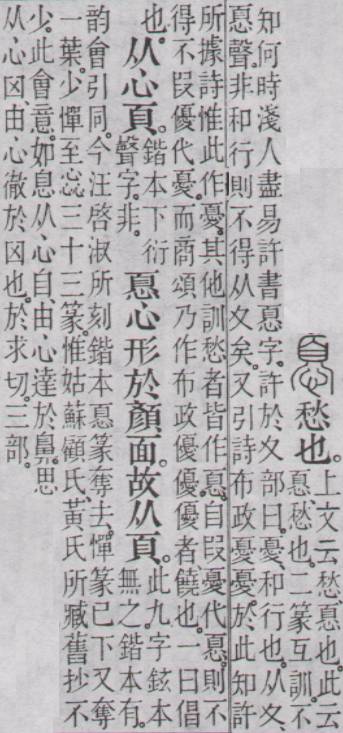 𢝊愁也。上文云愁、𢝊也。此云
𢝊、愁也。二篆互訓。不
知何時淺人盡易許書𢝊字。許於夊部曰。憂、和行也。从夊、
𢝊聲。非和行則不得从夊矣。又引詩布政憂憂。於此知許
所據詩惟此作憂。其他訓愁者皆作𢝊。自叚憂代𢝊。則不
得不叚優代憂。而商頌乃作布政優優。優者、饒也。一曰倡
也。从心頁。鍇本下衍
聲字。非。𢝊心形於顏面。故从頁。此九字鉉本
無之。鍇本有。
韵會引同。今汪啓淑所刻鍇本𢝊篆奪去。憚篆已下又奪
一葉。少憚至惢三十三篆。惟姑蘇顧氏、黃氏所臧舊抄不
少。此會意。如息从心自、由心達於鼻。思
从心囟、由心徹於囟也。於求切。三部。